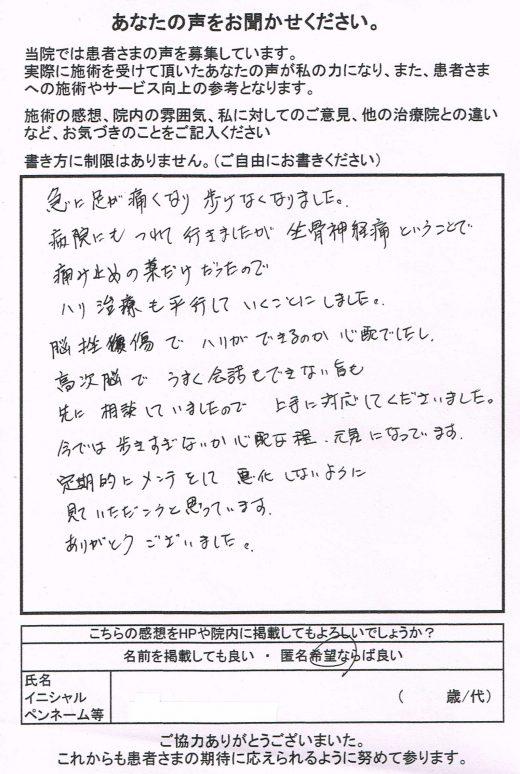 あなたの声をお聞かせください。
当院では患者さまの声を募集しています。
実際に施術を受けて頂いたあなたの声が私の力になり、また、患者さま
への施術やサービス向上の参考となります。
施術の感想、院内の雰囲気、私に対してのご意見、他の治療院との違い
など、お気づきのことをご記入ください
書き方に制限はありません。(ご自由にお書きください)
急に足が痛くなり 歩けなくなりました。
病院にも つれて行きましたが 坐骨神経痛ということで
痛み止めの薬だけだったので
ハリ治療も平行していくことにしました。
脳挫傷で ハリができるのか心配でしたし、
高次脳で うまく会話もできない旨も
先に 相談していましたので 上手に対応してくださいました。
今では 歩きすぎないか心配な程、元気になっています。
定期的にメンテをして 悪化しないように
見ていただこうと思っています。
ありがとうございました。
こちらの感想をHPや院内に掲載してもよろしいでしょうか?
名前を掲載しても良い ・ 匿名希望ならば良い
氏名
イニシャル
ペンネーム等
( 歳/代)
ご協力ありがとうございまいた。
これからも患者さまの期待に応えられるように努めて参ります。